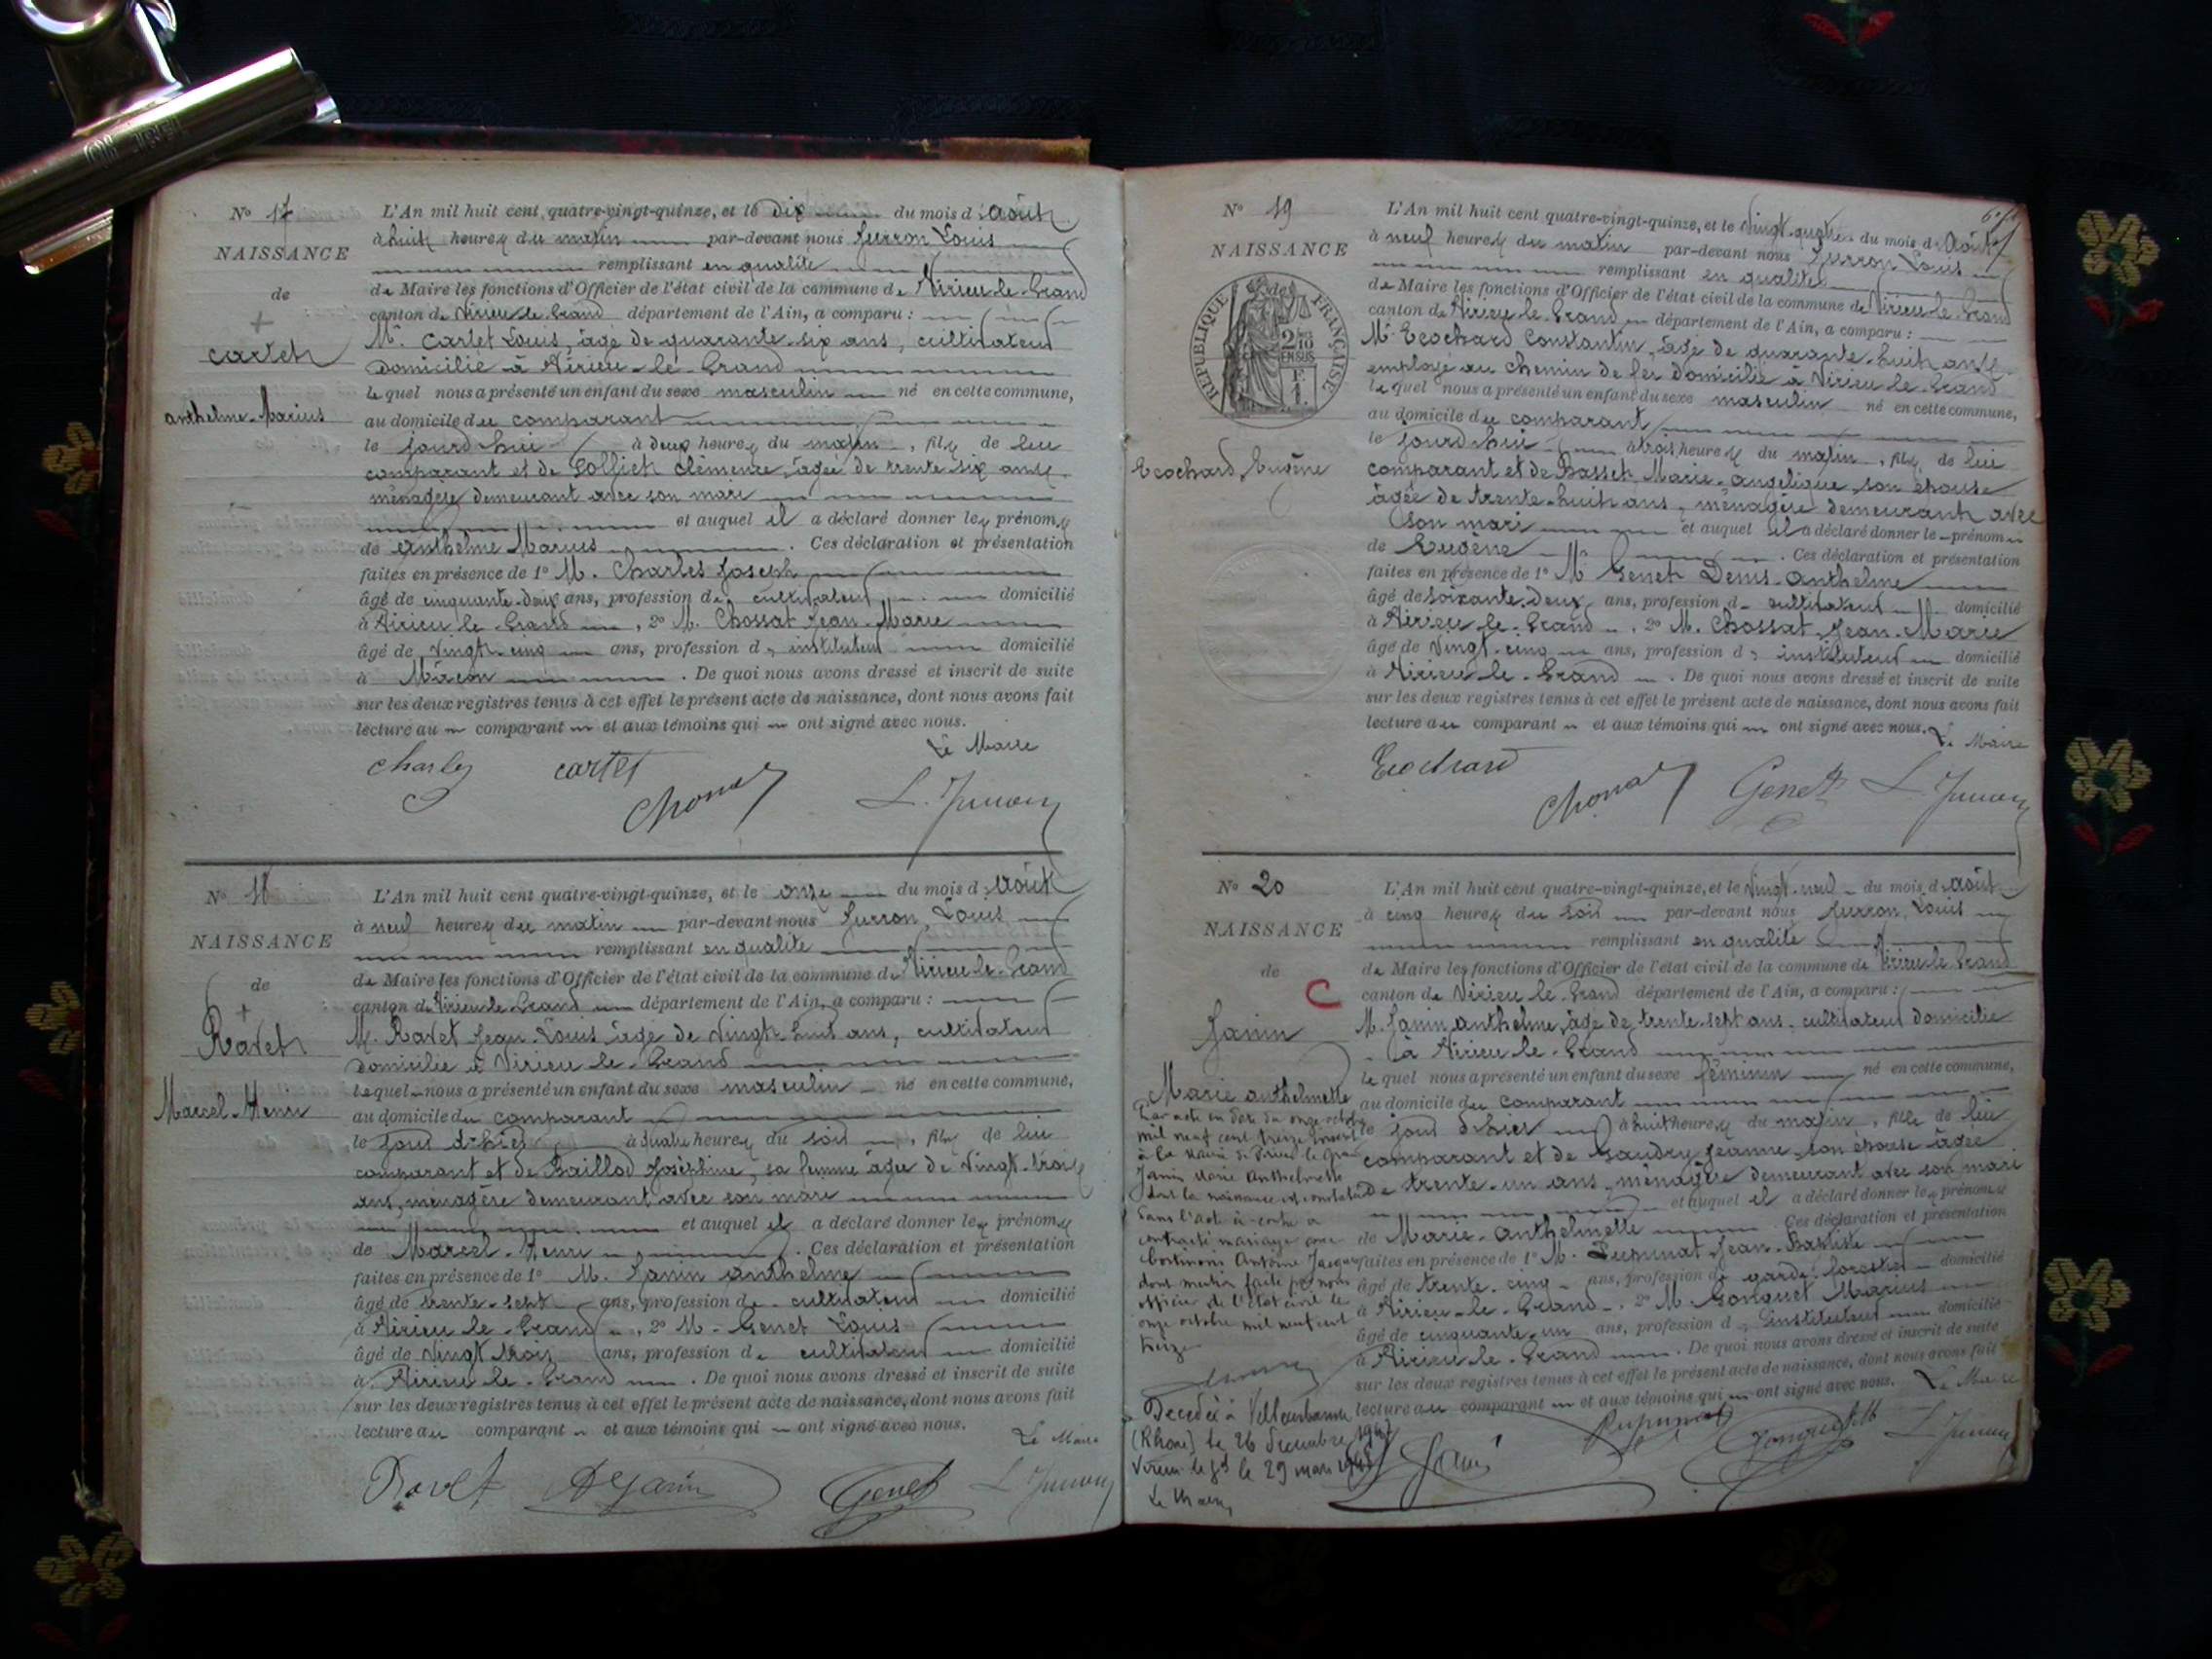 N° 17
NAISSANCE
de
Cartet
Anthelme-Marius
L'An mil huit cent quatre-vingt-quinze, et le dix du mois d'août
à huit heures du matin par-devant nous Jurron Louis
remplissant en qualité
de Maire les fonctions d'Officier de l'état civil de la commune de Virieu-le-Grand
canton de Virieu-le-Grand département de l'Ain, a comparu :
Mr. Cartet Louis, âgé de quarante-six ans, cultivateur
domicilié à Virieu-le-Grand
lequel nous a présenté un enfant du sexe masculin né en cette commune,
au domicile du comparant
le jourd'hui à deux heures du matin, fils de lui
comparant et de Collict Clémence, âgée de trente-six ans
ménagère demeurant avec son mari
et auquel il a déclaré donner les prénoms
de Anthelme Marius. Ces déclaration et présentation
faites en présence de 1° M. Charles Joseph
âgé de cinquante-deux ans, profession de cultivateur domicilié
à Virieu le Grand, 2° M. Chossat Jean-Marie
âgé de vingt-cinq ans, profession d'instituteur domicilié
à Mâcon. De quoi nous avons dressé et inscrit de suite
sur les deux registres tenus à cet effet le présent acte de naissance, dont nous avons fait
lecture au comparant et aux témoins qui ont signé avec nous.
Le Maire
Charles cartet
N° 18
NAISSANCE
de
Ravet
Marcel-Henri
L'An mil huit cent quatre-vingt-quinze, et le onze du mois d'août
à neuf heures du matin par-devant nous Jurron Louis
remplissant en qualité
de Maire les fonctions d'Officier de l'état civil de la commune de Virieu-le-Grand
canton de Virieu-le-Grand département de l'Ain, a comparu :
M. Ravet Jean-Louis, âgé de vingt-huit ans, cultivateur
domicilié à Virieu-le-Grand
lequel nous a présenté un enfant du sexe masculin né en cette commune,
au domicile du comparant
le jour d'hier à quatre heures du soir, fils de lui
comparant et de Baillod Joséphine, sa femme âgée de vingt-trois
ans, ménagère demeurant avec son mari
et auquel il a déclaré donner les prénoms
de Marcel-Henri. Ces déclaration et présentation
faites en présence de 1° M. Janin Anthelme
âgé de trente-sept ans, profession de cultivateur domicilié
à Virieu-le-Grand, 2° M. Genet Louis
âgé de vingt trois ans, profession de cultivateur domicilié
à Virieu-le-Grand. De quoi nous avons dressé et inscrit de suite
sur les deux registres tenus à cet effet le présent acte de naissance, dont nous avons fait
lecture au comparant et aux témoins qui ont signé avec nous.
Le Maire
Ravet Janin Genet
N° 19
NAISSANCE
RÉPUBLIQUE FRANÇAISE
2 10
EN SUS
Ecochard, Eugène
L'An mil huit cent quatre-vingt-quinze, et le vingt-quatre du mois d'août
à neuf heures du matin par-devant nous Jurron Louis
remplissant en qualité
de Maire les fonctions d'Officier de l'état civil de la commune de Virieu-le-Grand
canton de Virieu-le-Grand département de l'Ain, a comparu :
Mr Ecochard Constantin, âgé de quarante-huit ans
employé au chemin de fer domicilié à Virieu-le-Grand
lequel nous a présenté un enfant du sexe masculin né en cette commune,
au domicile du comparant
le jourd'hui à trois heures du matin, fils de lui
comparant et de Basset Marie-Angélique son épouse
âgée de trente-huit ans, ménagère demeurant avec
son mari et auquel il a déclaré donner le prénom
de Eugène. Ces déclaration et présentation
faites en présence de 1° Mr Genet Denis-Anthelme
âgé de soixante-deux ans, profession de cultivateur domicilié
à Virieu-le-Grand, 2° M. Chossat Jean-Marie
âgé de vingt-cinq ans, profession d'instituteur domicilié
à Virieu-le-Grand. De quoi nous avons dressé et inscrit de suite
sur les deux registres tenus à cet effet le présent acte de naissance, dont nous avons fait
lecture au comparant et aux témoins qui ont signé avec nous. Le Maire
Ecochard Genet
N° 20
NAISSANCE
de
C
Janin
Marie Anthelmette
Par acte en date du onze octobre
mil neuf cent treize inscrit
à la mairie de Virieu le Grand
Janin Marie Anthelmette
dont la naissance est constatée
dans l'acte ci-contre a
contracté mariage avec
Antoine Jacques
dont mention faite par nous
officier de l'état civil le
onze octobre mil neuf cent
treize
Décédée à Villeurbanne
(Rhône) le 26 décembre 1947
Virieu le Gd le 29 mars 1948
Le Maire,
L'An mil huit cent quatre-vingt-quinze, et le vingt-neuf du mois d'août
à cinq heures du soir par-devant nous Jurron Louis
remplissant en qualité
de Maire les fonctions d'Officier de l'état civil de la commune de Virieu-le-Grand
canton de Virieu-le-Grand département de l'Ain, a comparu :
M. Janin Anthelme, âgé de trente-sept ans, cultivateur domicilié
à Virieu-le-Grand
lequel nous a présenté un enfant du sexe féminin né en cette commune,
au domicile du comparant
le jour d'hier à huit heures du matin, fille de lui
comparant et de Gaudry Jeanne, son épouse âgée
de trente-un ans, ménagère demeurant avec son mari
et auquel il a déclaré donner les prénoms
de Marie-Anthelmette. Ces déclaration et présentation
faites en présence de 1° M. Jean-Baptiste
âgé de trente-cinq ans, profession de garde forestier domicilié
à Virieu-le-Grand, 2° M. Gonguet Marius
âgé de cinquante-un ans, profession d'instituteur domicilié
à Virieu-le-Grand. De quoi nous avons dressé et inscrit de suite
sur les deux registres tenus à cet effet le présent acte de naissance, dont nous avons fait
lecture au comparant et aux témoins qui ont signé avec nous. Le Maire
Janin